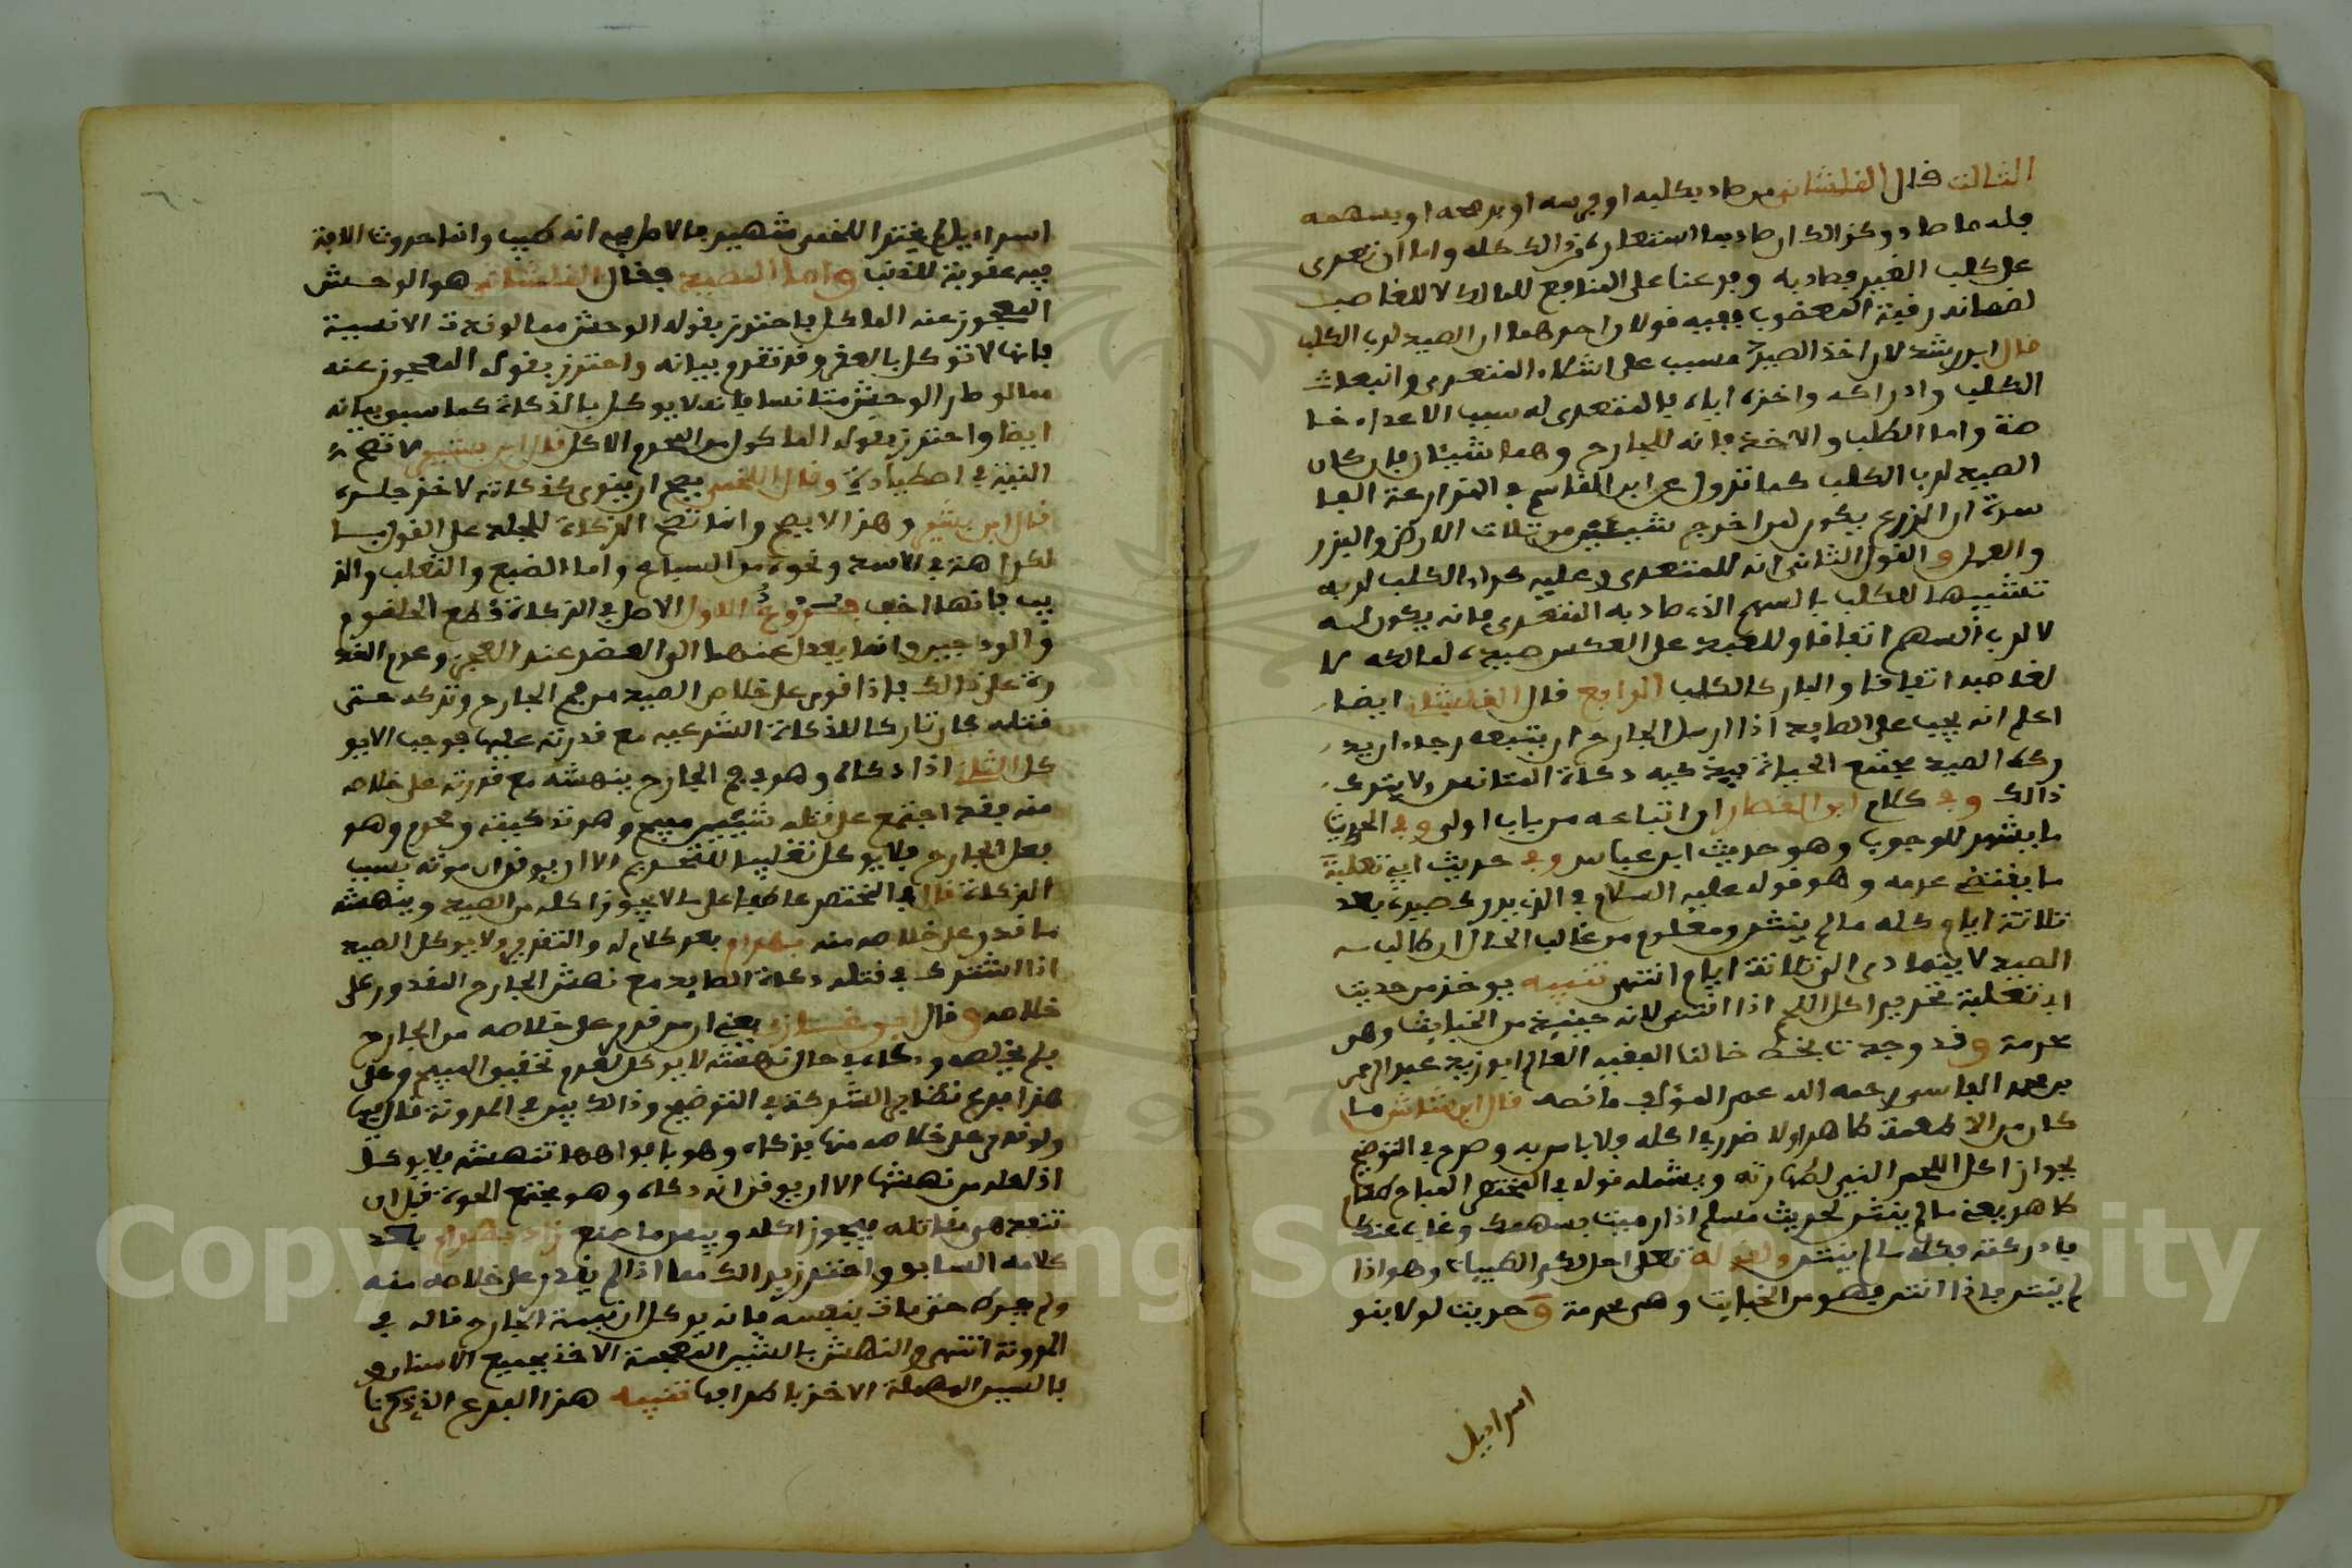 الثالث قال القلشاني من صاد بكلبه او فرسه او برمحه او بسهمه
فله ما صاد وكذالك ان صاد بما استعاره من ذالك كله واما ان تعدى
على كلب الغير فصاد به وفرعنا على المنافع للمالك لا للغاصب
لضمانه رقبة المغصوب ففيه قولان احدهما ان الصيد لرب الكلب
قال ابن رشد لان اخذ الصيد مسبب على اشلاء المتعدى وانبعاث
الكلب وادراكه واخذه اياه فالمتعدى له سبب الاعداء خا
صة واما الطلب والاخذ فانه للجارح وهما شيئان فان كان
الصيد لرب الكلب كما نزول ع ابن القاسم في المزارعة الفا
سدة ان الزرع يكون لمن اخرج شيئين من ثلاث الارض والبذر
والعمل والقول الثانى انه للمتعدى وعليه كراء الكلب لربه
تشبيها للكلب بالسهم الذى صاد به المتعدى فانه يكون له
لا لرب السهم اتفاقا وللعبد على العكس صيده لمالكه لا
لغاصبه اتفاقا والبازي كالكلب الرابع قال القلشانى ايضا
اعلم انه يجب على الصايد اذا ارسل الجارح ان يتبعه رجاء ان يد
ركه الصيد مجتمع الحياة فيذكيه ذكاة المتانس ولا يترك
ذالك وفي كلام ابن العطار ان اتباعه من باب اولى وفي الحديث
ما يشهد للوجوب وهو حديث ابن عباس وفي حديث ابي ثعلبة
ما يقتضى عدمه وهو قوله عليه السلام في الذى يدرك صيده بعد
ثلاثة ايام كله ما لم ينتن ومعلوم من غالب الحال ان طالب
الصيد لا يتمادى الى ثلاثة ايام انتهى تنبيه يوخذ من حديث
ابى ثعلبة تحريم اكل اللحم اذا انتن لانه حينيذ من الخبايث وهى
محرمة وقد وجدنا بخط خالنا الفقيه العالم ابو زيد عبد الرحمن
بن محمد الفاسى رحمه الله عمر المؤلف ما نصه قال ابن شاس ما
كان من الاطعمة طاهرا ولا ضرر في اكله فلا باس به وصرح في التوضيح
بجواز اكل اللحم النيئ لطهارته ويشمله قوله في المختصر المباح طعام
طاهر يعنى ما لم ينتن لحديث مسلم اذا رميت بسهمك وغاب عنك
فادركته فكله ما لم ينتن ولقوله تعلى احل لكم الطيبات وهو اذا
لم ينتن فاذا انتن فهو من الخبايث وهى محرمة وحديث لولا بنو
اسراءيل
اسراءيل لم يخنز اللحم شهير فالاصل فيه انه طيب وانما حدوث الآفة
فيه عقوبة للذنب واما المصيد فقال القلشانى هو الوحش
المعجوز عنه الماكول فاحترز بقوله الوحش مما لو ندت الانسية
فانها لا توكل بالعقر وقد تقدم بيانه واحترز بقوله المعجوز عنه
مما لو صار الوحش متانسا فانه لا يوكل الا بالذكاة كما سبق بيانه
ايضا واحترز بقوله الماكول من المحرم الاكل قال ابن بشير لا تصح
النية في اصطياده وقال اللخمى يصح ان ينوى بذكاته لاخذ جلده
قال ابن بشير وهذا لا يصح وانما تصح الذكاة للجلد على القول با
لكراهة في الاسد ونحوه من السباع واما الضبع والثعلب والذ
يب فانها اخف فـــروع الاول الاصل في الذكاة قطع الحلقوم
والودجين وانما يعدل عنهما الى العقر عند العجز وعدم القد
رة على ذالك فاذا قوى على خلاص الصيد من فم الجارح وتركه حتى
قتله كان تاركا للذكاة الشرعية مع قدرته عليها فوجب الا يو
كل الثانى اذا ذكاه وهو في فم الجارح ينهشه مع قدرته على خلاصه
منه فقد اجتمع على قتله شيئين مبيح وهو تذكيته ومحرم وهو
فعل الجارح فلا يوكل تغليبا للتحريم الا ان يوقن ان موته بسبب
الذكاة قال في المختصر عاطفا على ما لا يجوز اكله من الصيد وينهشه
ما قدر على خلاصه منه بهرام بعد كلام له والتقدير ولا يوكل الصيد
اذا اشترك في قتله ذكاة الصايد مع نهش الجارح المقدور على
خلاصه وقال ابن غازي يعنى ان من قدر على خلاصه من الجارح
فلم يخلصه وذكاه في حال نهشه لا يوكل لعدم تحقيق المبيح وعلى
هذا فرع نظاير الشركة في التوضيح وذالك بين في المدونة قال فيها
ولو قدر على خلاصه منها فذكاه وهو بافواهها تنهشه فلا يوكل
اذ لعله من نهشها الا ان يوقن انه ذكاه وهو مجتمع الحياة قبل ان
تنفذ هى مقاتله فيجوز اكله وبيس ما صنع زاد بهرام بعد
كلامه السابق واحترز بذالك مما اذا لم يقدر على خلاصه منه
ولم يدركه حتى مات بنفسه فانه يوكل اذ نيبته الجارح قاله في
المدونة انتهى والنهش بالشين المعجمة الاخذ بجميع الاسنان و
بالسين المهملة الاخذ باطرافها تنبيه هذا الفرع الذى ذكرنا